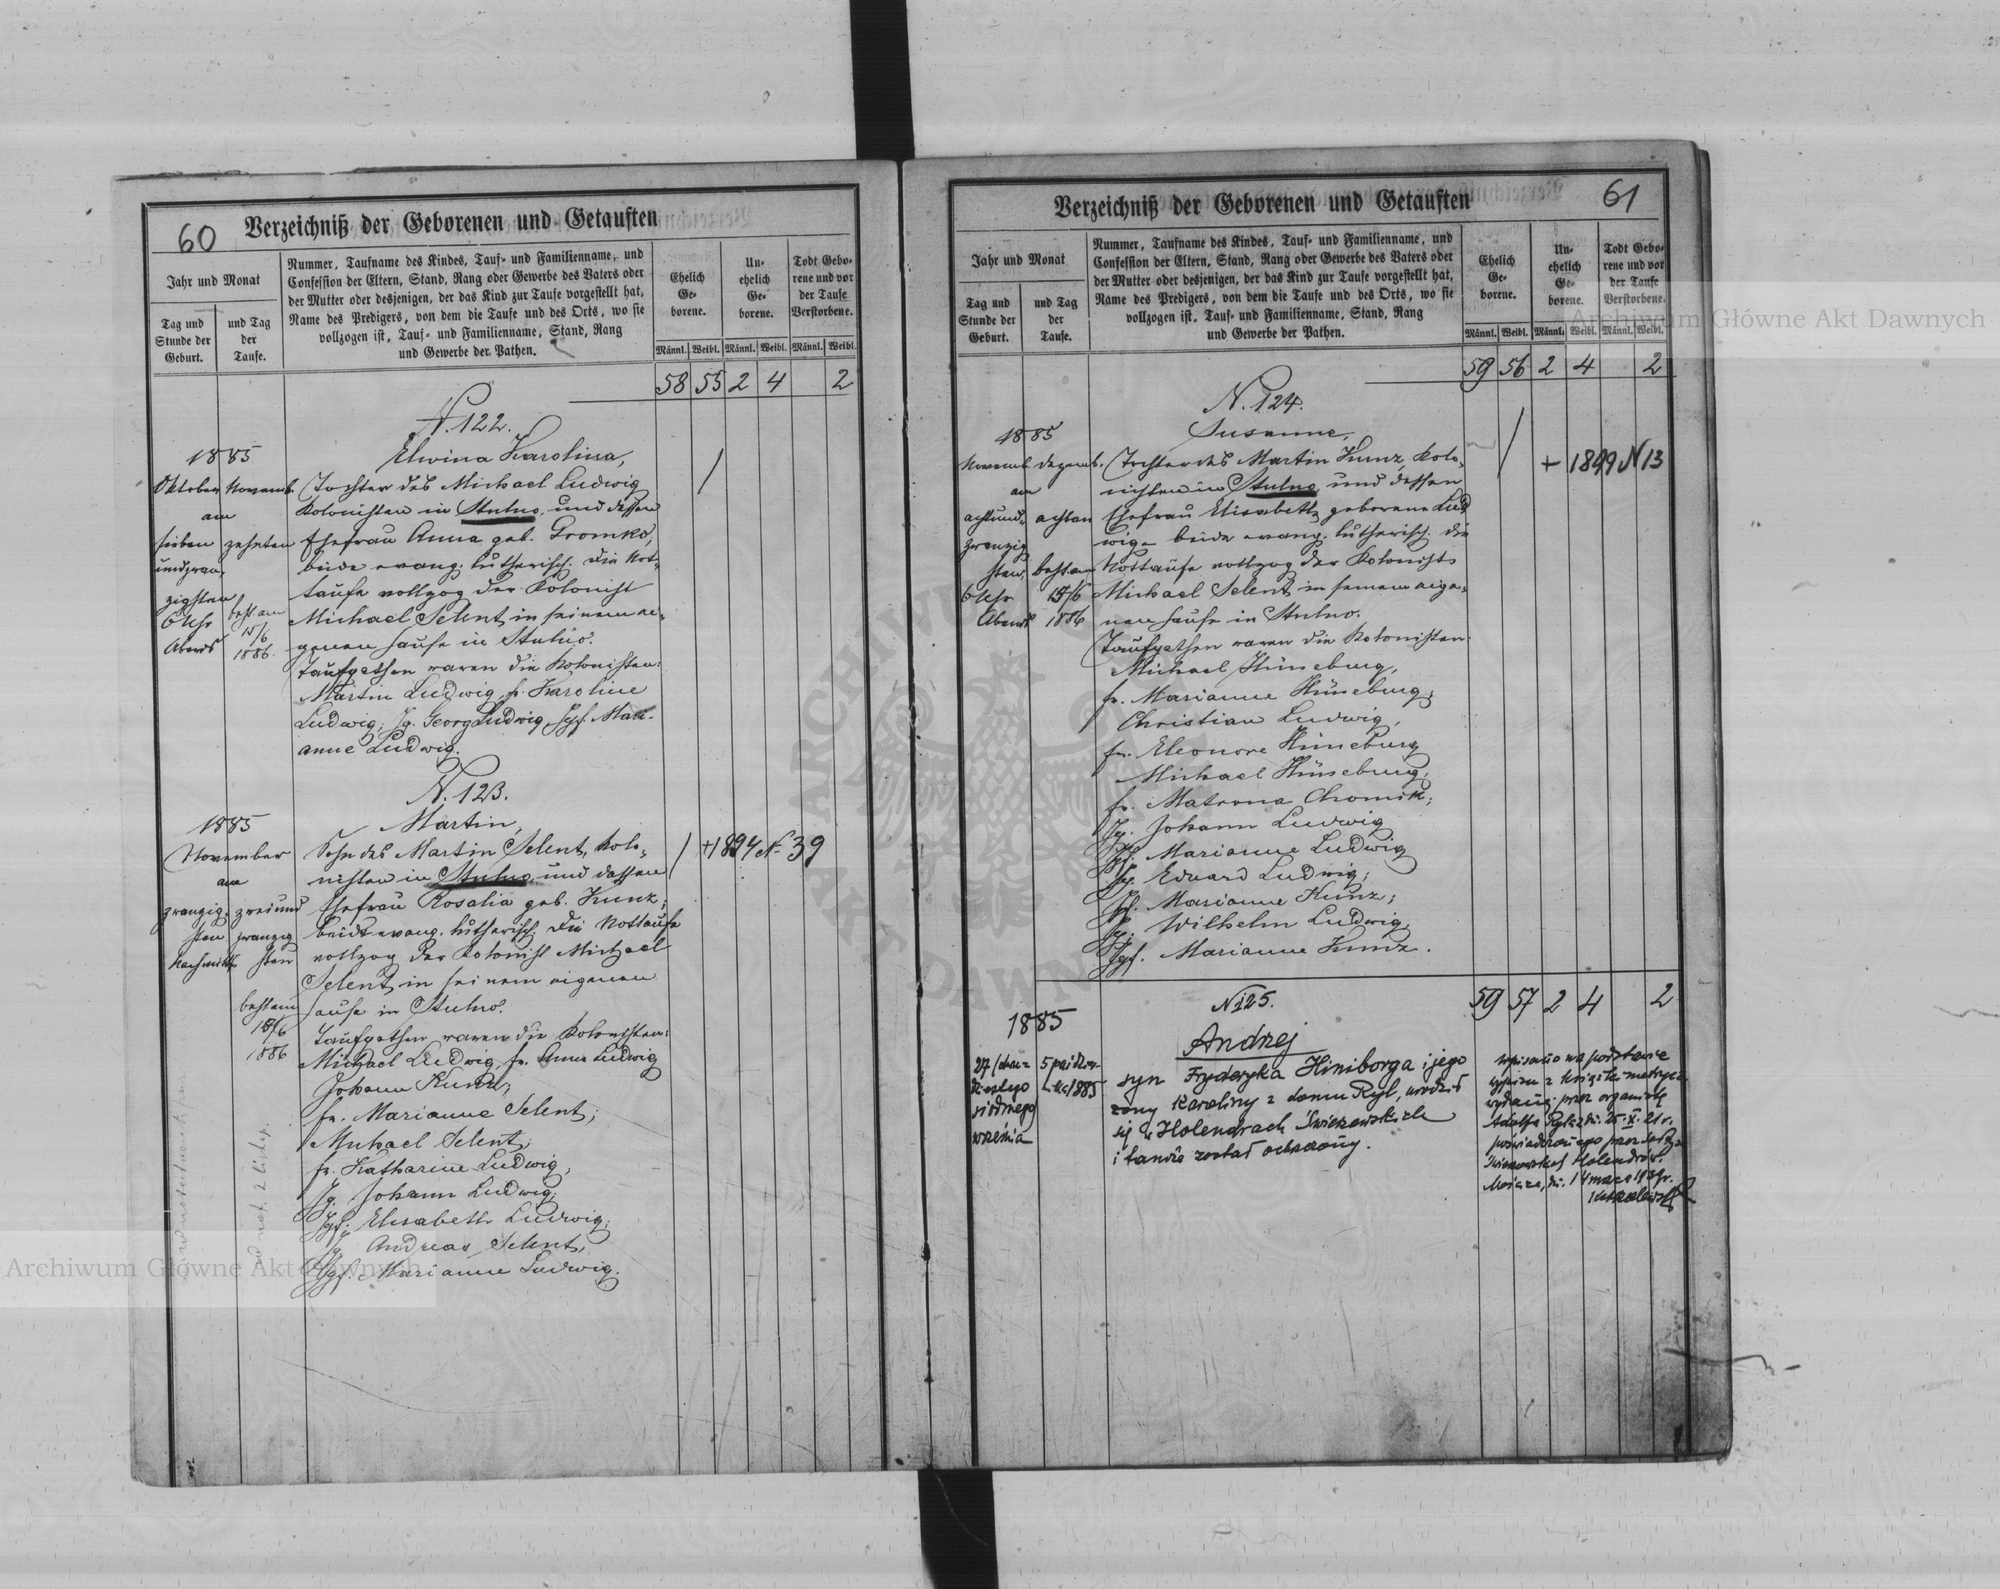 60
Verzeichniß der Geborenen und Getauften
Jahr und Monat
Tag und Stunde der Geburt.
und Tag der Taufe.
Nummer, Taufname des Kindes, Tauf- und Familienname, und
Confession der Eltern, Stand, Rang oder Gewerbe des Vaters oder
der Mutter oder desjenigen, der das Kind zur Taufe vorgestellt hat,
Name des Predigers, von dem die Taufe und des Orts, wo sie
vollzogen ist, Tauf- und Familienname, Stand, Rang
und Gewerbe der Pathen.
Ehelich Ge- borene.
Un- ehelich Ge- borene.
Todt Gebo- rene und vor der Taufe Verstorbene.
Männl. Weibl. Männl. Weibl. Männl. Weibl.
58 55 2 4 2
N. 122.
1885
Oktober Novemb.
am
sieben zehnten
undzwan-
zigsten
6 Uhr
Abends
best am
15/6
1886.
Elwina Karolina,
Tochter des Michael Ludwig
Kolonisten in Stulno, und dessen
Ehefrau Anna geb. Gromko,
beide evang. lutherisch. Die Not-
taufe vollzog der Kolonist
Michael Selent in seinem ei-
genen Hause in Stulno.
Taufpathen waren die Kolonisten:
Martin Ludwig, fr. Karoline
Ludwig; Jg. Georg Ludwig, Jgf. Mari-
anne Ludwig.
N. 123.
1885
November
am
zwanzig- zwei und
sten zwanzig
Nachmitt. sten
best am
15/6
1886
Martin,
Sohn des Martin Selent, Kolo-
nisten in Stulno und dessen
Ehefrau Rosalia geb. Kunz;
beide evang. lutherisch. Die Nottaufe
vollzog der Kolonist Michael
Selent in seinem eigenen
Hause in Stulno.
Taufpathen waren die Kolonisten:
Michael Ludwig, fr. Anna Ludwig
Johann Kunz,
fr. Marianne Selent;
Michael Selent;
fr. Katharine Ludwig,
Jg. Johann Ludwig;
Jgf. Elisabeth Ludwig;
Jg. Andreas Selent,
Jgf. Marianne Ludwig.
+ 1894 N. 39
61
Verzeichniß der Geborenen und Getauften
Jahr und Monat
Tag und Stunde der Geburt.
und Tag der Taufe.
Nummer, Taufname des Kindes, Tauf- und Familienname, und
Confession der Eltern, Stand, Rang oder Gewerbe des Vaters oder
der Mutter oder desjenigen, der das Kind zur Taufe vorgestellt hat,
Name des Predigers, von dem die Taufe und des Orts, wo sie
vollzogen ist, Tauf- und Familienname, Stand, Rang
und Gewerbe der Pathen.
Ehelich Ge- borene.
Un- ehelich Ge- borene.
Todt Gebo- rene und vor der Taufe Verstorbene.
Männl. Weibl. Männl. Weibl. Männl. Weibl.
59 56 2 4 2
N. 124.
1885
Novemb. Dezemb.
am
achtund- achten
zwanzig
sten
6 Uhr
Abends
best am
15/6
1886
Susanne,
Tochter des Martin Kunz, Kolo-
nisten in Stulno, und dessen
Ehefrau Elisabeth, geborene Lud
wig beide evang. lutherisch. Die
Nottaufe vollzog der Kolonist
Michael Selent in seinem eige-
nen Hause in Stulno.
Taufpathen waren die Kolonisten:
Michael Hüneburg,
fr. Marianne Hüneburg;
Christian Ludwig,
fr. Eleonore Hüneburg
Michael Hüneburg,
fr. Matrona Chomik;
Jg. Johann Ludwig
Jgf. Marianne Ludwig
Jg. Eduard Ludwig;
Jgf. Marianne Kunz;
Jg. Wilhelm Ludwig
Jgf. Marianne Kunz.
+ 1899 N 13
N 125.
59 57 2 4 2
1885
27 /dwu-
dziestego
siódmego
września
5 paździer-
nika 1885
Andrzej
syn Fryderyka Hiniborga i jego
żony Karoliny z domu Ryl, urodził
się w Holendrach Świerżowskich
i tamże został ochrzczony.
Wpisano na podstawie
wypisu z książki metrycz.
wydanej przez organistę
Adolfa Ryla dn. 25. X. 21 r.
poświadczonego przez
Holendrów.
Mościce, dn. 14 marca 1939 r.
Archiwum Główne Akt Dawnych
Archiwum Główne Akt Dawnych